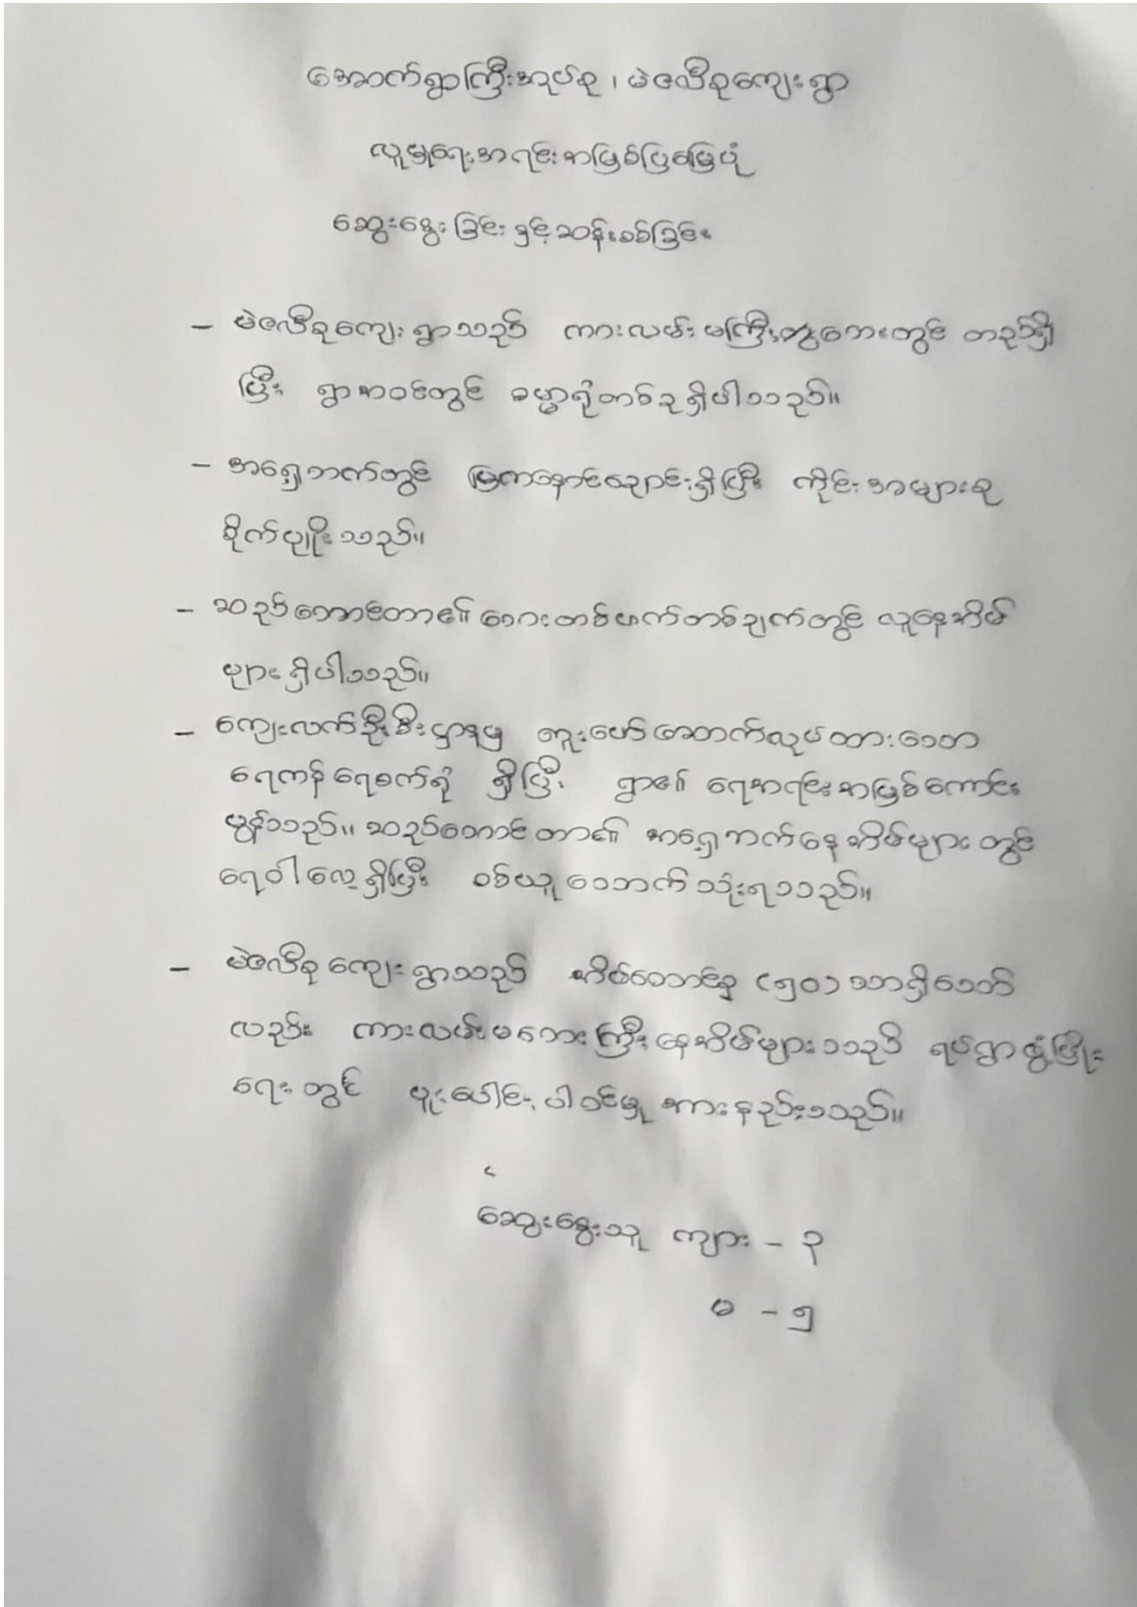 အောက်ရွာကြီးအုပ်စု၊ မဲဇလီစုကျေးရွာ
လူမှုရေးအရင်းအမြစ်ပြမြေပုံ
ဆွေးနွေးခြင်းနှင့်ဆန်းစစ်ခြင်း
- မဲဇလီစုကျေးရွာသည် ကားလမ်းမကြီးဘေးတွင် တည်ရှိ
ပြီး ရွာအဝင်တွင် ဓမ္မာရုံတစ်ခုရှိပါသည်။
- အရှေ့ဘက်တွင် မြကနောင်ချောင်းရှိပြီး ကိုင်းအများစု
စိုက်ပျိုးသည်။
- ဆည်တောင်တာ၏ ဘေးတစ်ဖက်တစ်ချက်တွင် လူနေအိမ်
များရှိပါသည်။
- ကျေးလက်ဦးစီးဌာနမှ တူးဖော်ဆောက်လုပ်ထားသော
ရေကန်ရေစက်ရုံ ရှိပြီး ရွာ၏ ရေအရင်းအမြစ်ကောင်း
မွန်သည်။ ဆည်တောင်တာ၏ အရှေ့ဘက်နေအိမ်များတွင်
ရေဝါလေ့ရှိပြီး ဝယ်ယူသောက်သုံးရသည်။
- မဲဇလီစုကျေးရွာသည် အိမ်ထောင်စု (၅၀) သာရှိသော်
လည်း ကားလမ်းမဘေးကြီးနေအိမ်များသည် ရပ်ရွာဖွံ့ဖြိုး
ရေးတွင် ပူးပေါင်းပါဝင်မှု အားနည်းသည်။
ဆွေးနွေးသူ ကျား - ၃
မ - ၅